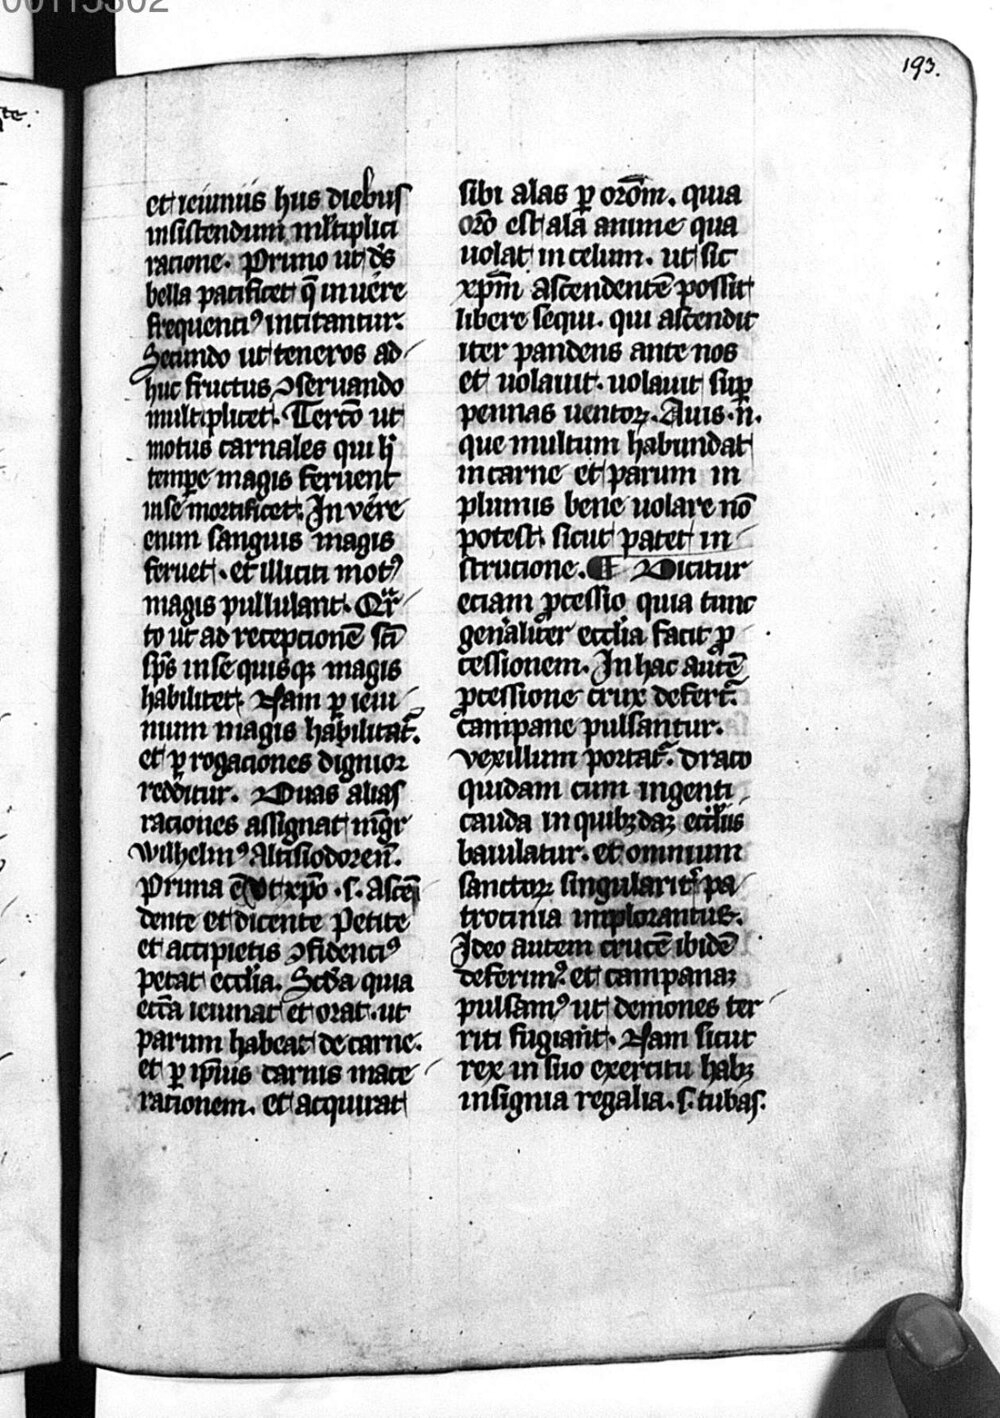 00113302
193.
et ieiuniis hys diebus
insistendum mltiplici
racione. Primo ut ds̄
bella pacificet q̄ in uere
frequenciꝰ incitantur.
Secundo ut teneros ad
huc fructus ꝯseruando
multiplicet. Tercō ut
motus carnales qui h̄
temꝑe magis feruent
in se mortificet. In uere
enim sanguis magis
feruet. et illiciti motꝰ
magis pullulant. Qͣr
to ut ad recepcionē scī
sp̄s in se quisqꝫ magis
habilitet. Nam ꝑ ieiu
nium magis habilitat᷑.
et ꝑ rogaciones dignior
redditur. Duas alias
raciones assignat mḡr
wilhelmꝰ Altisiodoren̄.
Prima ē ut xp̄o .s. ascen̄
dente et dicente Petite
et accipietis ꝯfidenciꝰ
petat eccl̄ia. Scd̄a quia
ecc̄a ieiunat et orat. ut
parum habeat de carne.
et ꝑ ip̄ius carnis mace
racionem. et acquirat
sibi alas ꝑ orōm. quia
orō est ala anime qua
uolat in celum. ut sic
xp̄m ascendentē possit
libere sequi. qui ascendit
iter pandens ante nos
et uolauit. uolauit suꝑ
pennas uentoꝝ. Auis .n̄.
que multum habundat
in carne et parum in
plumis bene uolare nō
potest. sicut patet in
strucione. ¶ Dicitur
eciam ꝓcessio quia tunc
gen̄aliter eccl̄ia facit ꝓ
cessionem. In hac autē
ꝓcessione crux defert᷑.
campane pulsantur.
vexillum portat᷑. draco
quidam cum ingenti
cauda in quibꝫdaꝫ eccl̄iis
baiulatur. et omnium
sanctoꝝ singularit᷑ pa
trocinia implorantur.
Ideo autem crucē ibidē
deferimꝰ. et campanaꝫ
pulsamꝰ ut demones ter
riti fugiant. Nam sicut
rex in suo exercitu habꝫ
insignia regalia .s. tubas.